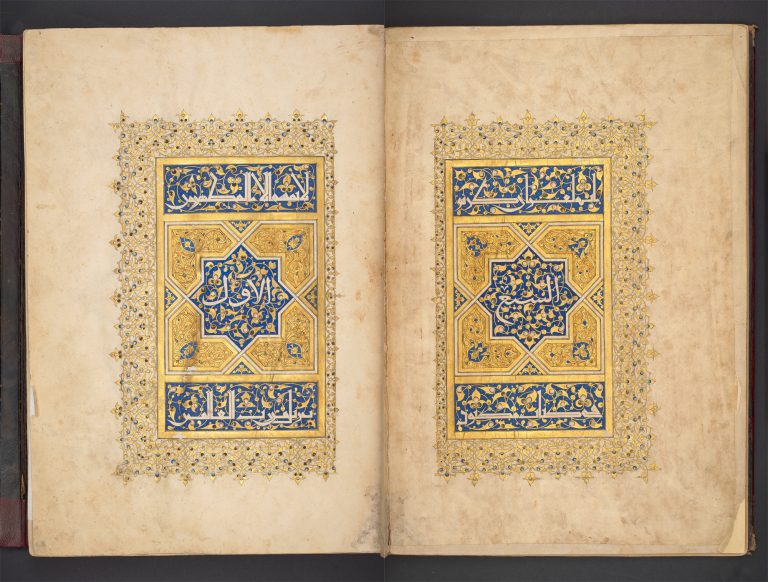 إنه لقرآن كريم
السبع
في كتاب مكنون
لا يمسه إلا المطهرون
الأول
تنزيل من رب العلمين